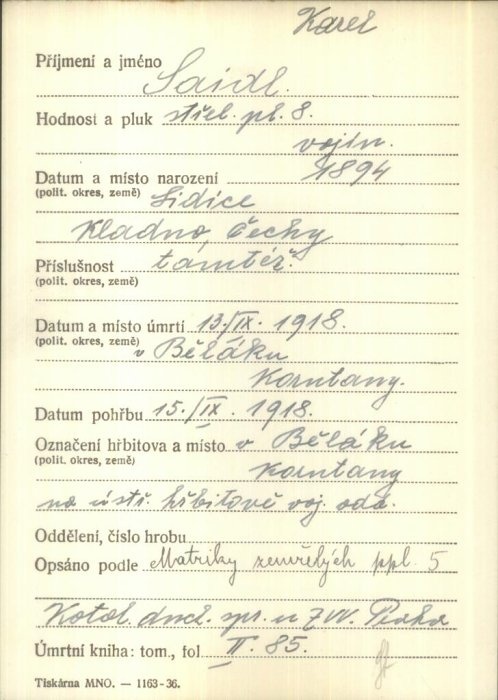 Karel
Příjmení a jméno Saidl.
Hodnost a pluk střel. pl. 8.
vojín.
Datum a místo narození 1894
(polit. okres, země) Lidice
Kladno Čechy
Příslušnost tamtéž.
(polit. okres, země)
Datum a místo úmrtí 13./IX. 1918.
(polit. okres, země) v Běláku
Korutany.
Datum pohřbu 15./IX. 1918.
Označení hřbitova a místo v Běláku
(polit. okres, země) Korutany
na ústř. hřbitově voj. odd.
Oddělení, číslo hrobu
Opsáno podle Matriky zemřelých ppl. 5
Katol. duch. spr. u ZVV. Praha
Úmrtní kniha: tom., fol. II. 85.
Tiskárna MNO. — 1163-36.